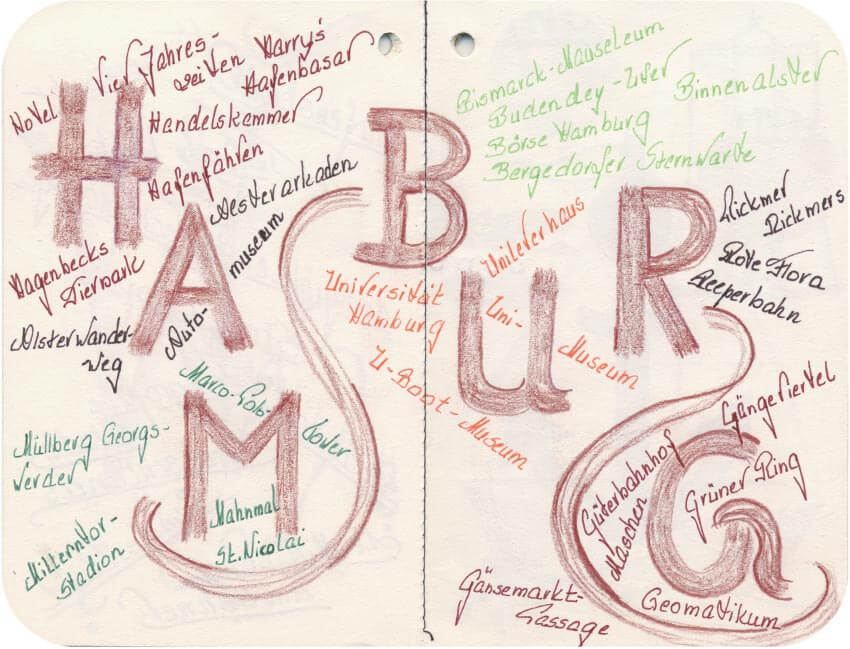 H
Hotel
Vier Jahres-
zeiten
Harry's
Hafenbasar
Handelskammer
Hafenfähren
Hagenbecks
Tierpark
A
Alsterarkaden
Alsterwander-
weg
Auto-
museum
M
Marco-Polo-
Tower
Müllberg Georgs-
werder
Millerntor-
Stadion
Mahnmal
St. Nicolai
B
Bismarck-Mausoleum
Bubendey-Ufer
Binnenalster
Börse Hamburg
Bergedorfer Sternwarte
U
Universität
Hamburg
Unileverhaus
Uni-
Museum
U-Boot-Museum
R
Rickmer
Rickmers
Rote Flora
Reeperbahn
G
Gängeviertel
Güterbahnhof
Maschen
Grüner Ring
Geomatikum
Gänsemarkt-
Passage